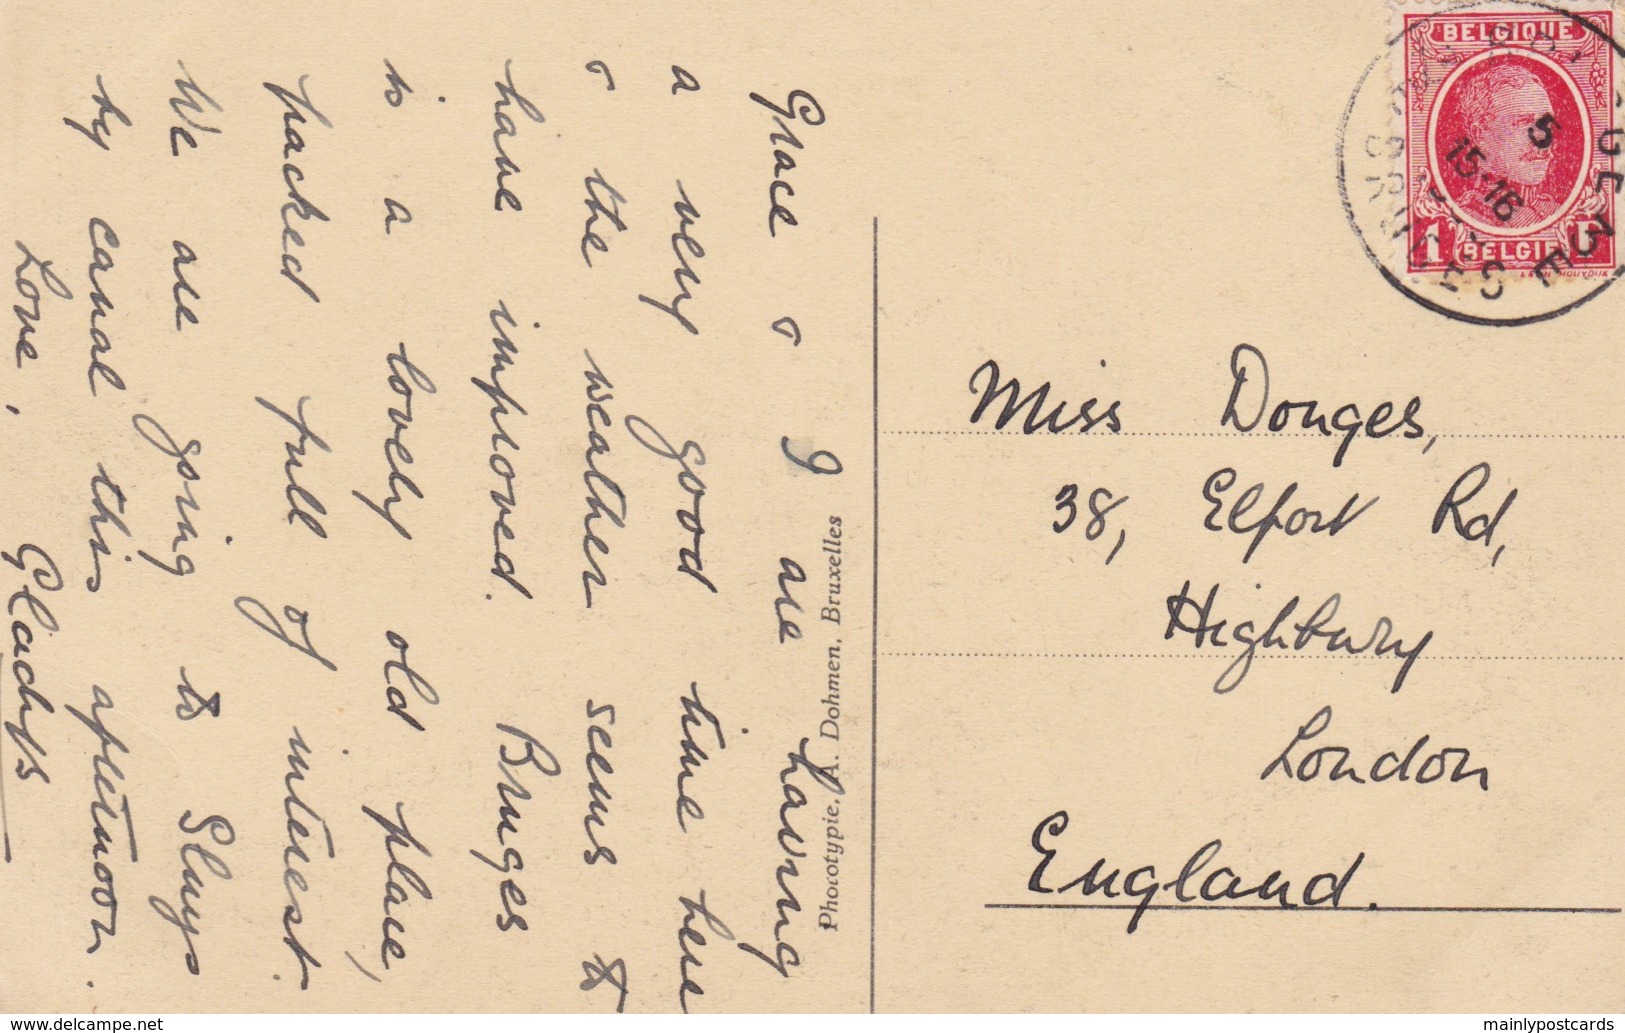 Grace & I are having
a very good time here
& the weather seems to
have improved. Bruges
is a lovely old place,
packed full of interest.
We are going to Sluys
by canal this afternoon.
Love,
Gladys
Phototypie. A. Dohmen, Bruxelles
BELGIQUE
1
BELGIË
5
15-16
BRUGGE
Miss Donges,
38, Elfort Rd,
Highbury
London
England.
www.delcampe.net
mainlypostcards